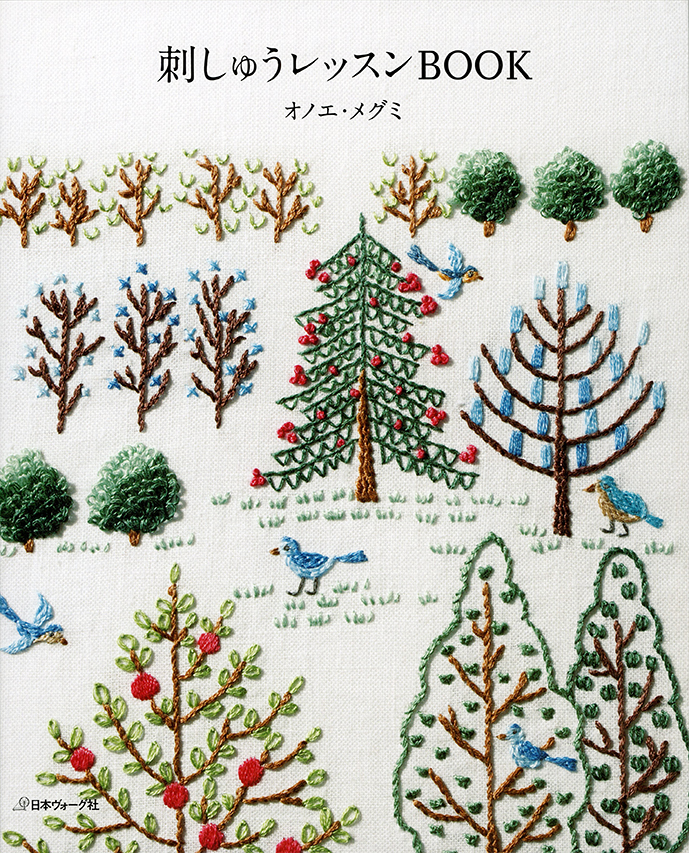 刺しゅうレッスンBOOK
オノエ・メグミ
日本ヴォーグ社